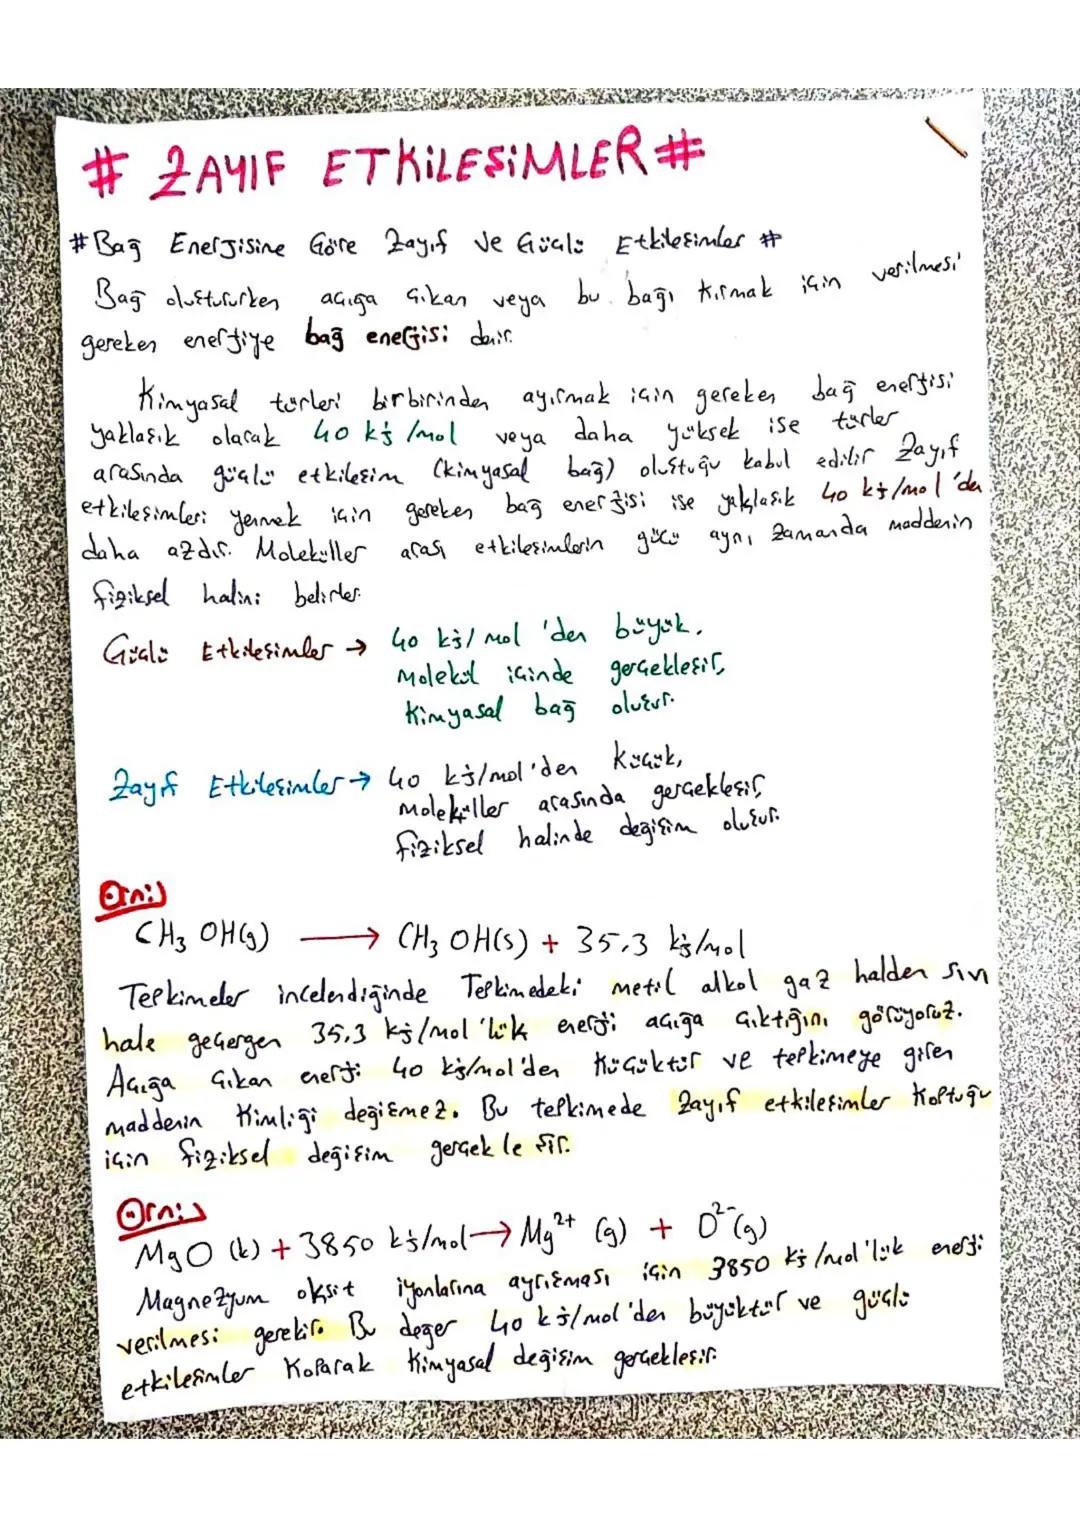 # ZAYIF ETKİLEŞİMLER #
# Bağ Enerjisine Göre Zayıf ve Güçlü Etkileşimler #
Bağ oluştururken açığa çıkan veya bu bağı kırmak için verilmesi
gereken enerjiye bağ enerjisi denir.
Kimyasal türleri birbirinden ayırmak için gereken bağ enerjisi
yaklaşık olarak 40 kj/mol veya daha yüksek ise türler
arasında güçlü etkileşim (kimyasal bağ) oluştuğu kabul edilir Zayıf
etkileşimleri yenmek için gereken bağ enerjisi ise yaklaşık 40 kj/mol'da
daha azdır. Moleküller arası etkileşimlerin gücü aynı zamanda maddenin
fiziksel halini belirler.
Güçlü Etkileşimler → 40 kj/mol'den büyük,
Molekül içinde gerçekleşir,
Kimyasal bağ oluşur.
Zayıf Etkileşimler → 40 kj/mol'den küçük,
Moleküller arasında gerçekleşir,
fiziksel halinde değişim oluşur.
Örn:)
CH3 OH(g) → CH3 OH(s) + 35,3 kj/mol
Tepkimeler incelendiğinde Tepkimedeki metil alkol gaz halden sıvı
hale geçergen 35,3 kj/mol'lük enerji açığa çıktığını görüyoruz.
Açığa çıkan enerji 40 kj/mol'den küçüktür ve tepkimeye giren
maddenin kimliği değişmez. Bu tepkimede zayıf etkileşimler koptuğu
için fiziksel değişim gerçekleşir.
Örn:)
MgO (k) + 3850 kj/mol → Mg2+ (g) + O2- (g)
Magnezyum oksit iyonlarına ayrışması için 3850 kj/mol'lük enerji
verilmesi gerekir. Bu değer 40 kj/mol'den büyüktür ve güçlü
etkileşimler koparak kimyasal değişim gerçekleşir.